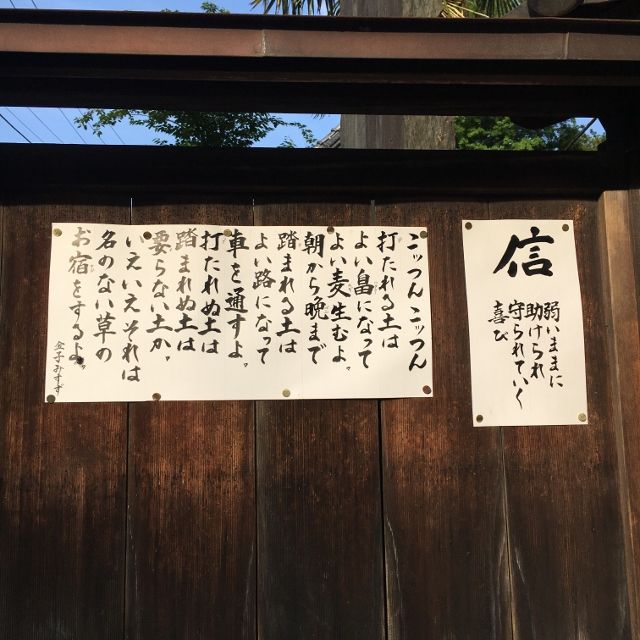 信
弱いままに
助けられ
守られていく
喜び
こッつんこッつん
打たれる土は
よい畠になって
よい麦生むよ。
朝から晩まで
踏まれる土は
よい路になって
車を通すよ。
打たれぬ土は
踏まれぬ土は
要らない土か。
いえいえそれは
名のない草の
お宿をするよ。
金子みすゞ